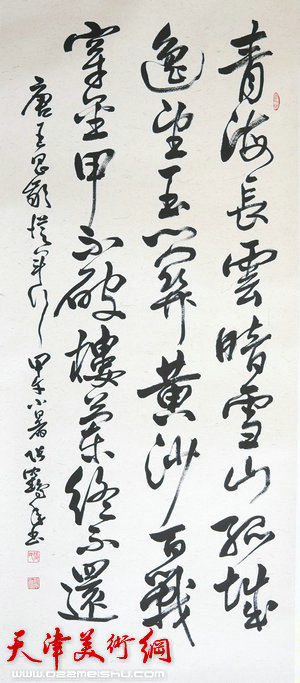 青海長雲暗雪山孤城
遥望玉門關黄沙百戰
穿金甲不破樓蘭終不還
唐王昌齡從軍行 甲午小暑 鶴年書
天津美術網
www.022meishu.com